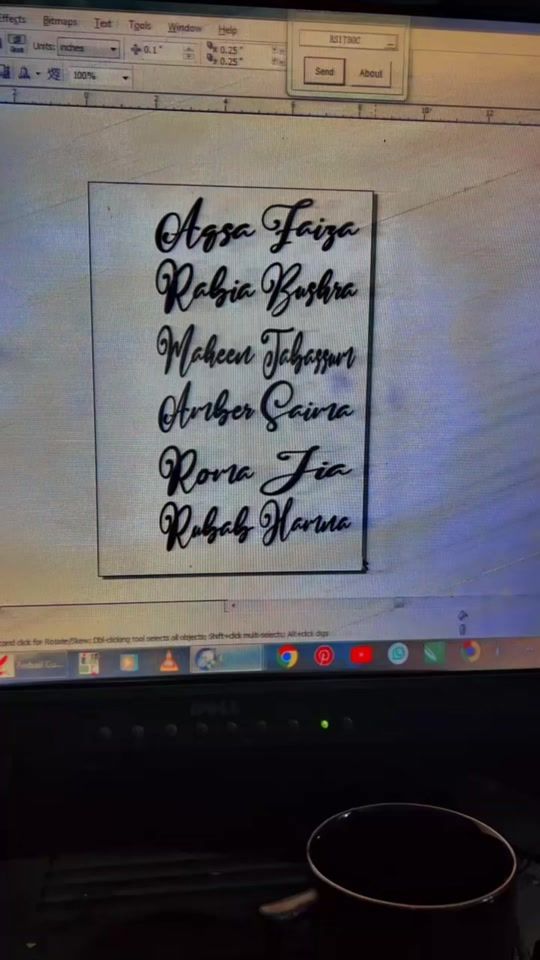 Effects Bitmaps Text Tools Window Help
RS1780C
Units: inches 0.1" x 0.25"
y 0.25"
Send About
100%
2 0 2 4 6 8 10 12
Aqsa Faiza
Rabia Bushra
Maheen Tabassum
Amber Saima
Roma Jia
Rubab Hamna
cond click for Rotate/Skew; Dbl-clicking tool selects all objects; Shift+click multi-selects; Alt+click digs
DELL